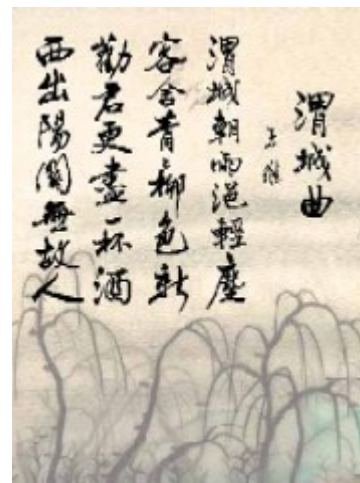 渭城曲
王維
渭城朝雨浥輕塵
客舍青々柳色新
勸君更盡一杯酒
西出陽關無故人